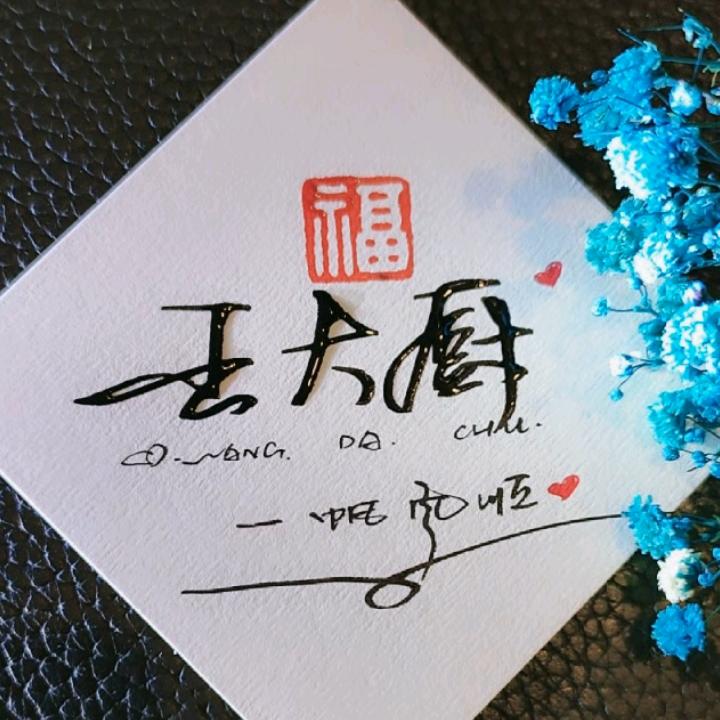 福
王大厨
WANG. DA. CHU.
一帆风顺